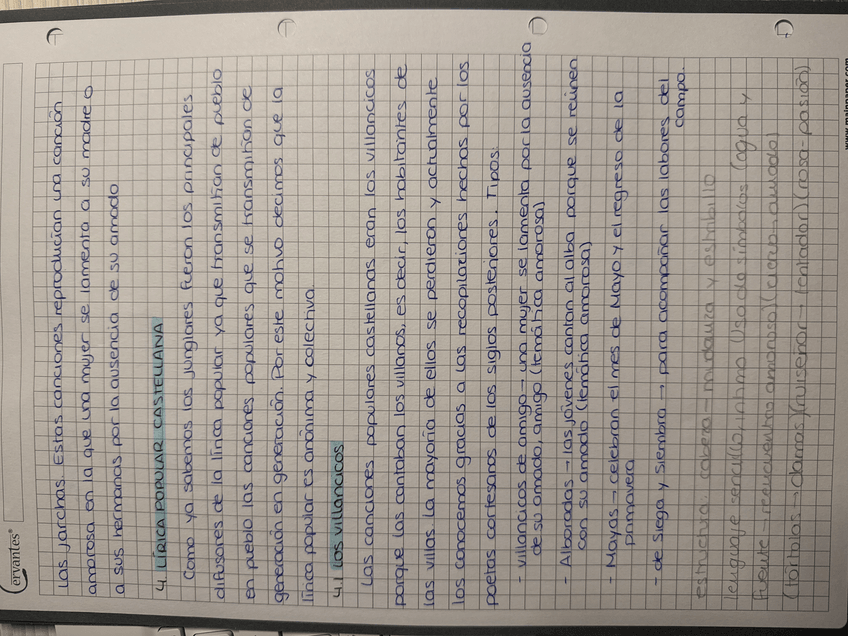 Cervantes®
las jarchas. Estas canciones reproducían una canción
amorosa en la que una mujer se lamenta a su madre o
a sus hermanas por la ausencia de su amado
4. LÍRICA POPULAR CASTELLANA
Como ya sabemos los juglares fueron los principales
difusores de la lírica popular ya que transmitían de pueblo
en pueblo las canciones populares que se transmitían de
generación en generación. Por este motivo decimos que la
lírica popular es anónima y colectiva.
4.1 LOS VILLANCICOS
Las canciones populares castellanas eran los villancicos
porque las cantaban los villanos, es decir, los habitantes de
las villas. La mayoría de ellos se perdieron y actualmente
los conocemos gracias a las recopilaciones hechas por los
poetas cortesanos de los siglos posteriores. Tipos:
- villancicos de amigo → una mujer se lamenta por la ausencia
de su amado, amigo (temática amorosa)
- Alboradas → las jóvenes cantan al alba porque se reúnen
con su amado (temática amorosa)
- Mayas → celebran el mes de Mayo y el regreso de la
primavera
- de Siega y Siembra → para acompañar las labores del
campo.
estructura: cabeza - mudanza y estribillo
lenguaje sencillo, íntimo Uso de símbolos (agua y
fuente → reencuentro amoroso) (ciervo → amado)
(tórtolas → damas) (ruiseñor → tentador) (rosa - pasión)